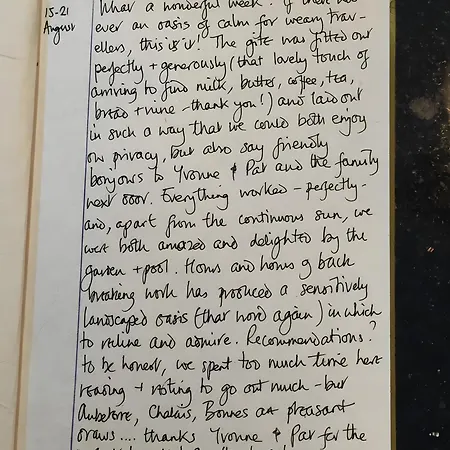 15-21
August
What a wonderful week! If there has
ever an oasis of calm for weary trav-
ellers, this is it! The gîte was fitted out
perfectly + generously (that lovely touch of
arriving to find milk, butter, coffee, tea,
bread + wine - thank you!) and laid out
in such a way that we could both enjoy
our privacy, but also say friendly
bonjours to Yvonne & Pat and the family
next door. Everything worked - perfectly -
and, apart from the continuous sun, we
were both amazed and delighted by the
garden + pool. Hours and hours of back
breaking work has produced a sensitively
landscaped oasis (that word again) in which
to recline and admire. Recommendations?
to be honest, we spent too much time here
reading + to go out much - but
Aubeterre, Chalais, Bonnes are pleasant
draws.... thanks Yvonne & Pat for the